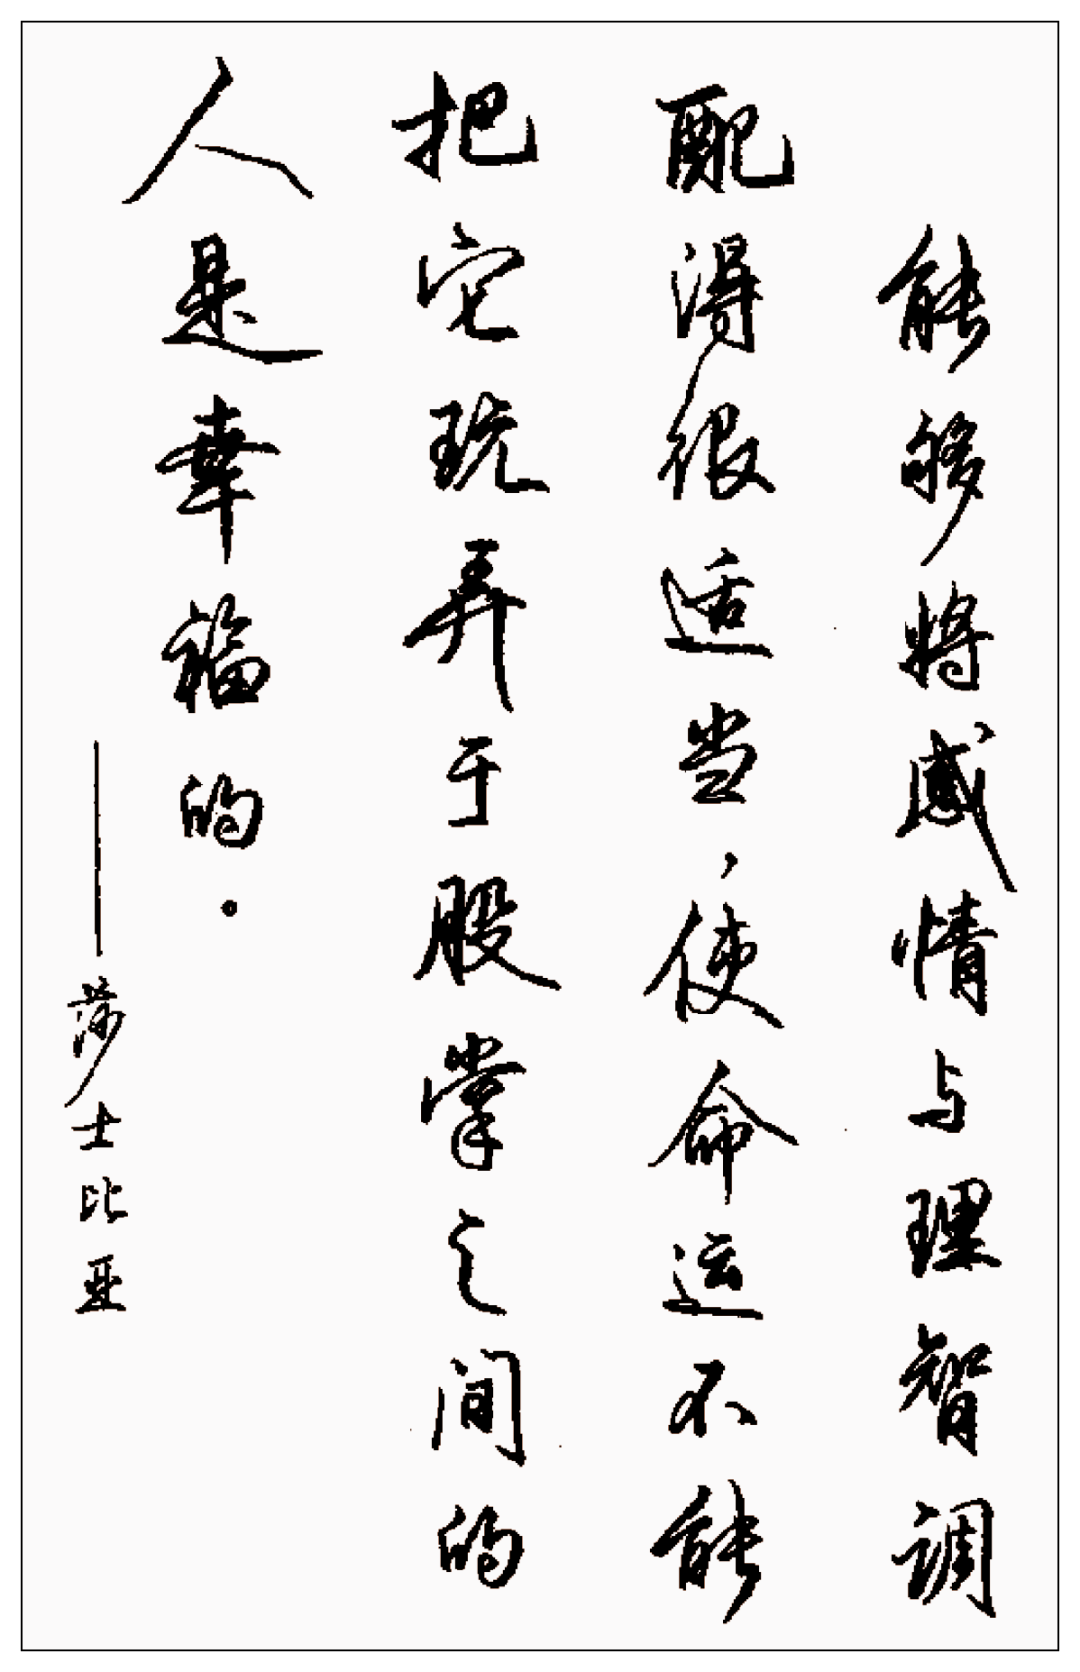 能够将感情与理智调
配得很适当，使命运不能
把它玩弄于股掌之间的
人是幸福的。
——莎士比亚